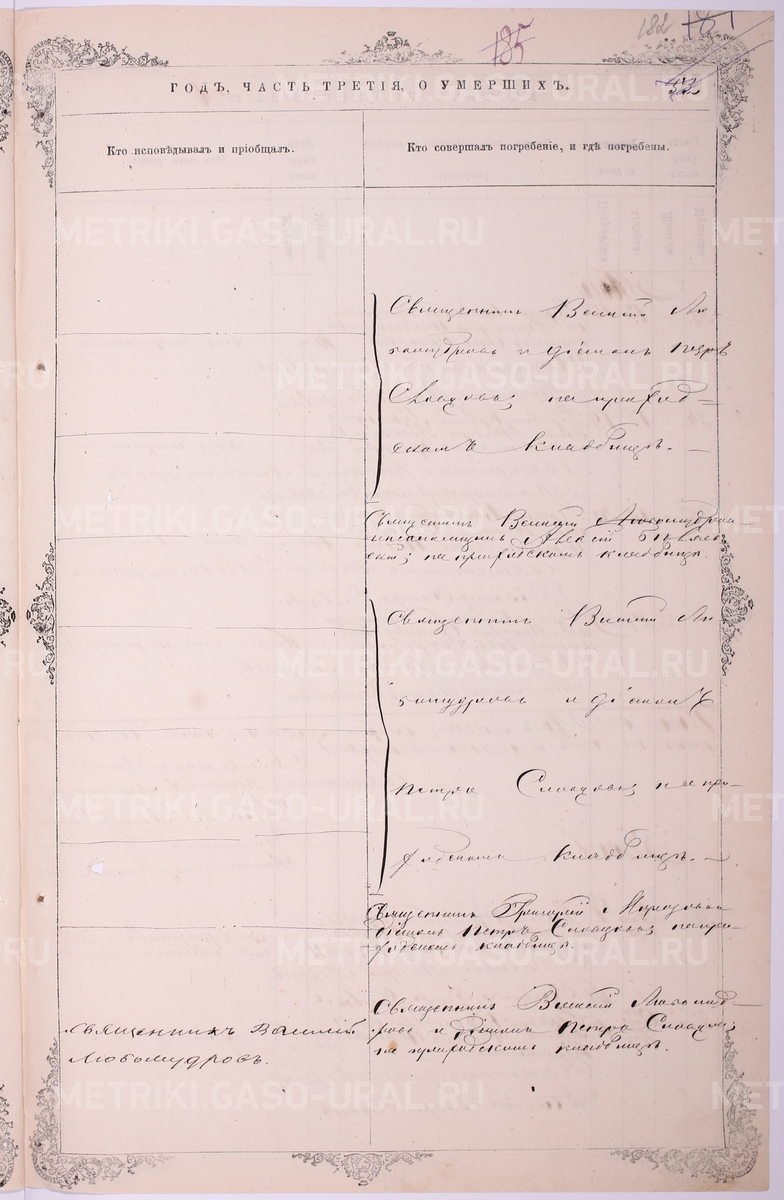 185
182 181
ГОДЪ, ЧАСТЬ ТРЕТІЯ, О УМЕРШИХЪ.
Кто исповѣдывалъ и пріобщалъ.
Кто совершалъ погребеніе, и гдѣ погребены.
METRIKI.GASO-URAL.RU
Священникъ Василій Лю-
бомудровъ и діаконъ Петръ
Словцовъ; на приход-
скомъ кладбищѣ.
Священникъ Василій Любомудровъ
и псаломщикъ
на приходскомъ кладбищѣ.
Священникъ Василій Лю-
бомудровъ и діаконъ
Петръ Словцовъ; на при-
ходскомъ кладбищѣ.
Священникъ Григорій
діаконъ Петръ Словцовъ; на при-
ходскомъ кладбищѣ.
Священникъ Василій Любомуд-
ровъ и діаконъ Петръ Словцовъ;
на приходскомъ кладбищѣ.
Священникъ Василій
Любомудровъ.